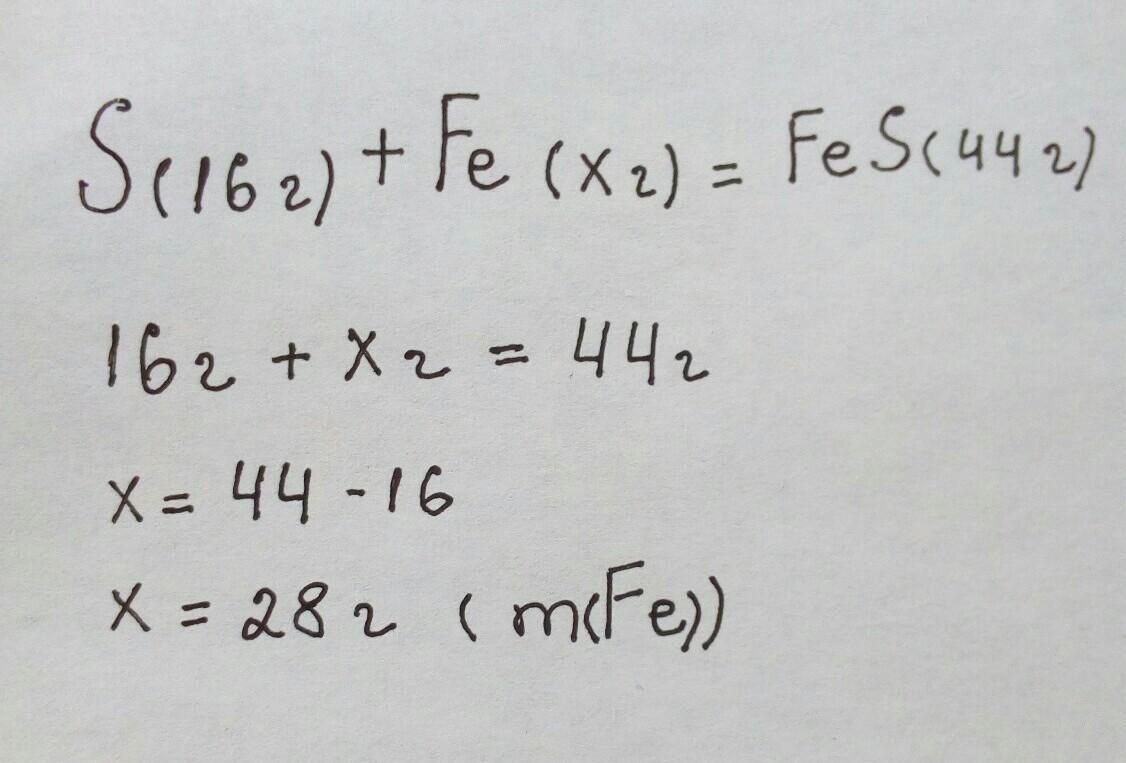 S(16г) + Fe (xг) = FeS(44г)
16г + xг = 44г
x = 44 - 16
x = 28г (m(Fe))